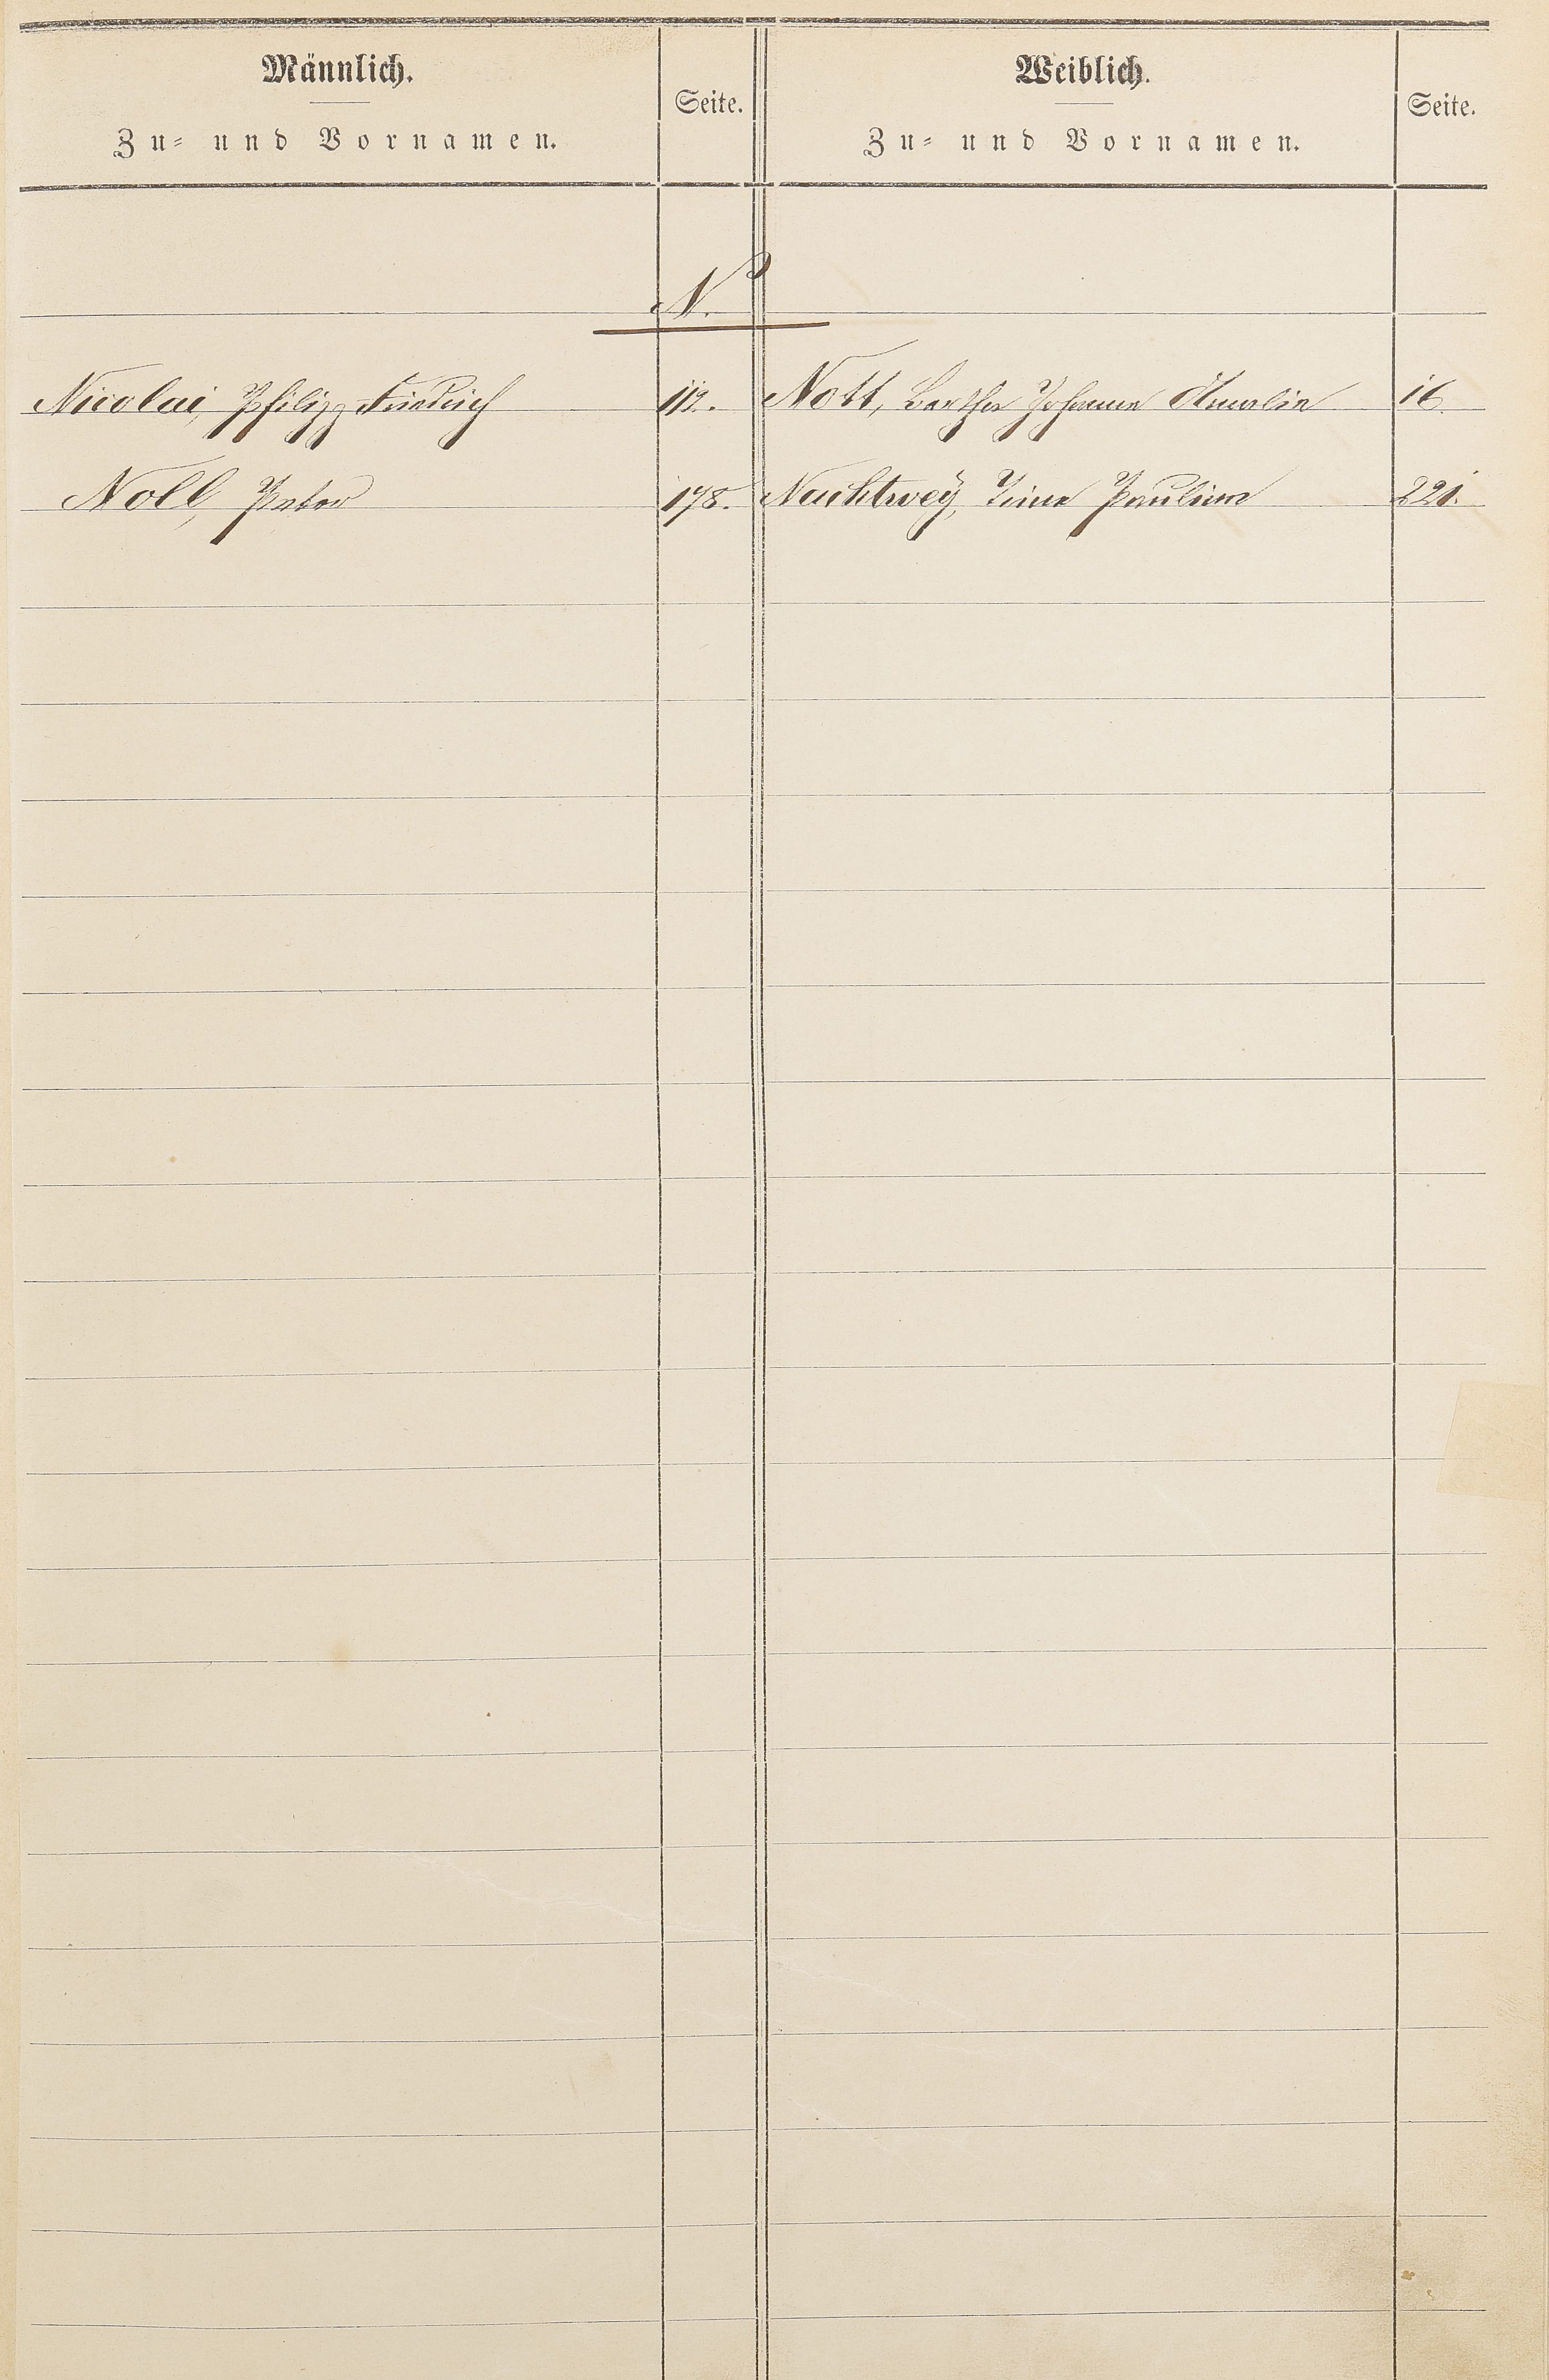 Männlich.
Zu- und Vornamen.
Seite.
Weiblich.
Zu- und Vornamen.
Seite.
N.
Nicolai, Philipp Friedrich 112. Nott, Bertha Johanne Amalie 16.
Noll, Peter 178. Nachtweÿ, Pauline 221.